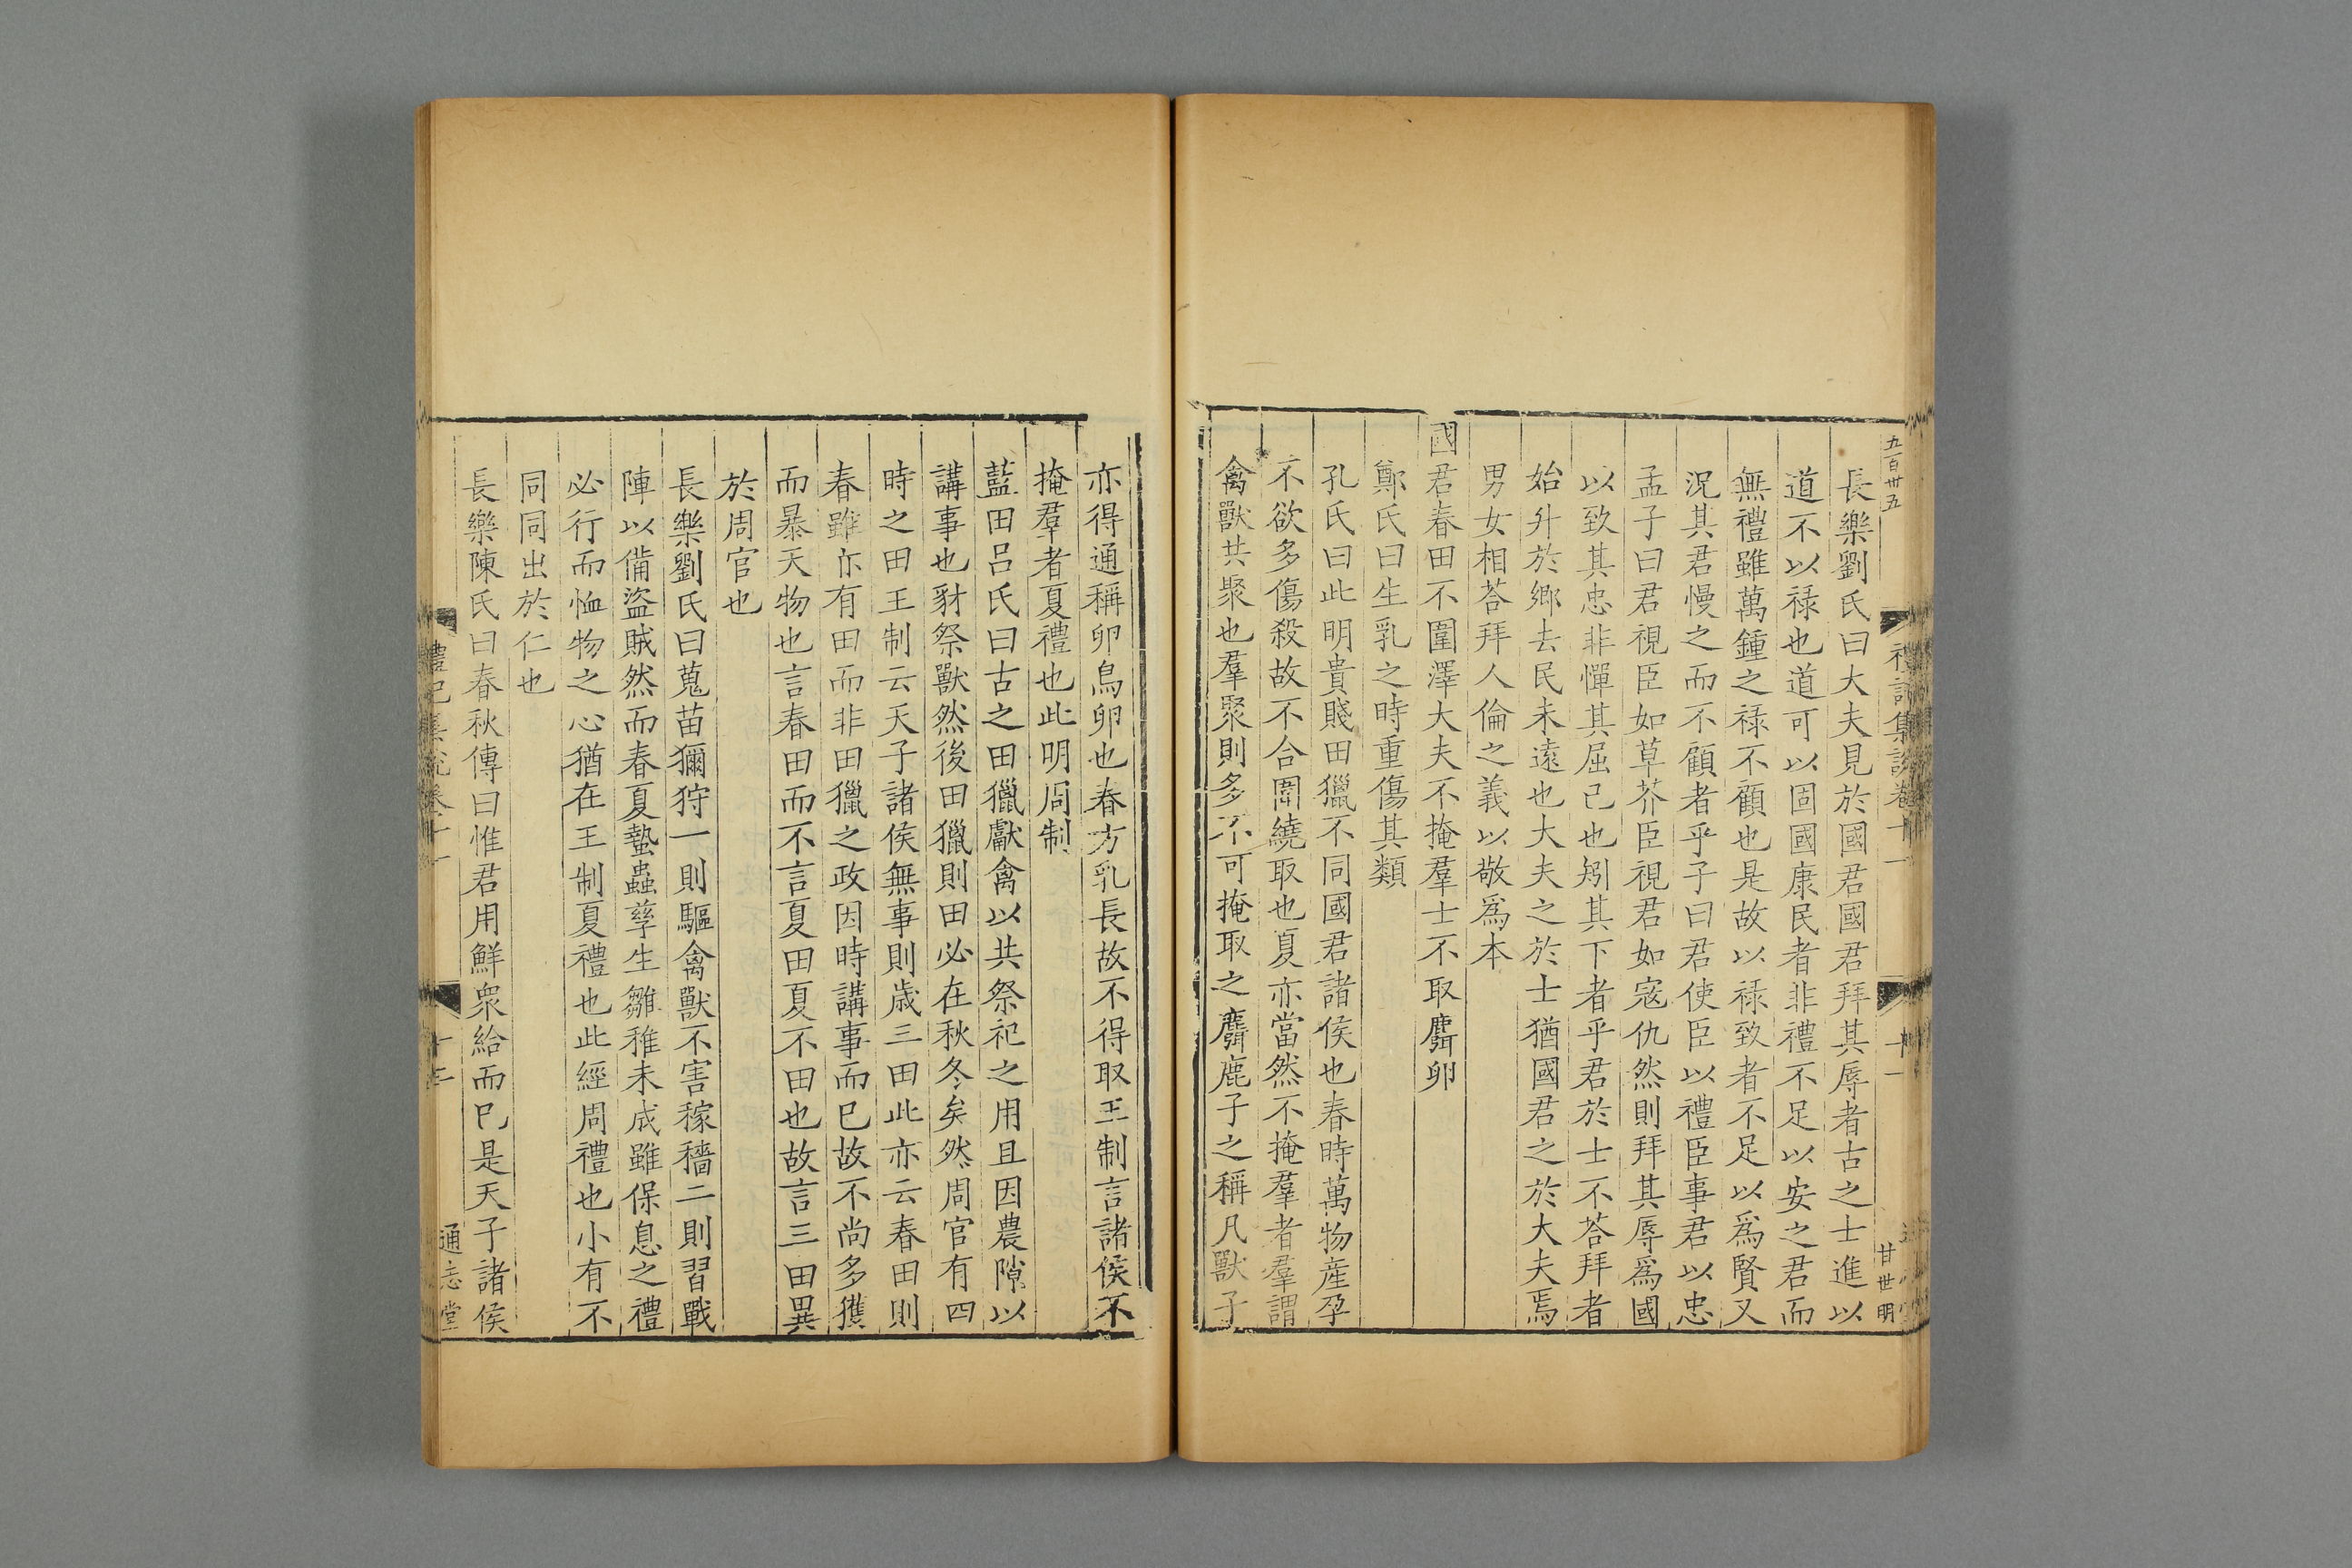 五百卅五
禮記集說卷十一
十一
甘世明
長樂劉氏曰大夫見於國君國君拜其辱者古之士進以
道不以禄也道可以固國康民者非禮不足以安之君而
無禮雖萬鍾之禄不顧也是故以禄致者不足以爲賢又
況其君慢之而不顧者乎子曰君使臣以禮臣事君以忠
孟子曰君視臣如草芥臣視君如寇仇然則拜其辱爲國
以致其忠非憚其屈己也矧其下者乎君於士不荅拜者
始升於鄉去民未遠也大夫之於士猶國君之於大夫焉
男女相荅拜人倫之義以敬爲本
國君春田不圍澤大夫不掩羣士不取麛卵
鄭氏曰生乳之時重傷其類
孔氏曰此明貴賤田獵不同國君諸侯也春時萬物産孕
不欲多傷殺故不合圍繞取也夏亦當然不掩羣者羣謂
禽獸共聚也羣聚則多不可掩取之麛鹿子之稱凡獸子
亦得通稱卵鳥卵也春方乳長故不得取王制言諸侯不
掩羣者夏禮也此明周制
藍田吕氏曰古之田獵獻禽以共祭祀之用且因農隙以
講事也豺祭獸然後田獵則田必在秋冬矣然周官有四
時之田王制云天子諸侯無事則歲三田此亦云春田則
春雖亦有田而非田獵之政因時講事而已故不尚多獲
而暴天物也言春田而不言夏田夏不田也故言三田異
於周官也
長樂劉氏曰蒐苗獮狩一則驅禽獸不害稼穡二則習戰
陣以備盜賊然而春夏蟄蟲孳生雛稚未成雖保息之禮
必行而恤物之心猶在王制夏禮也此經周禮也小有不
同同出於仁也
長樂陳氏曰春秋傳曰惟君用鮮衆給而已是天子諸侯
禮記集說卷十一
十二
通志堂